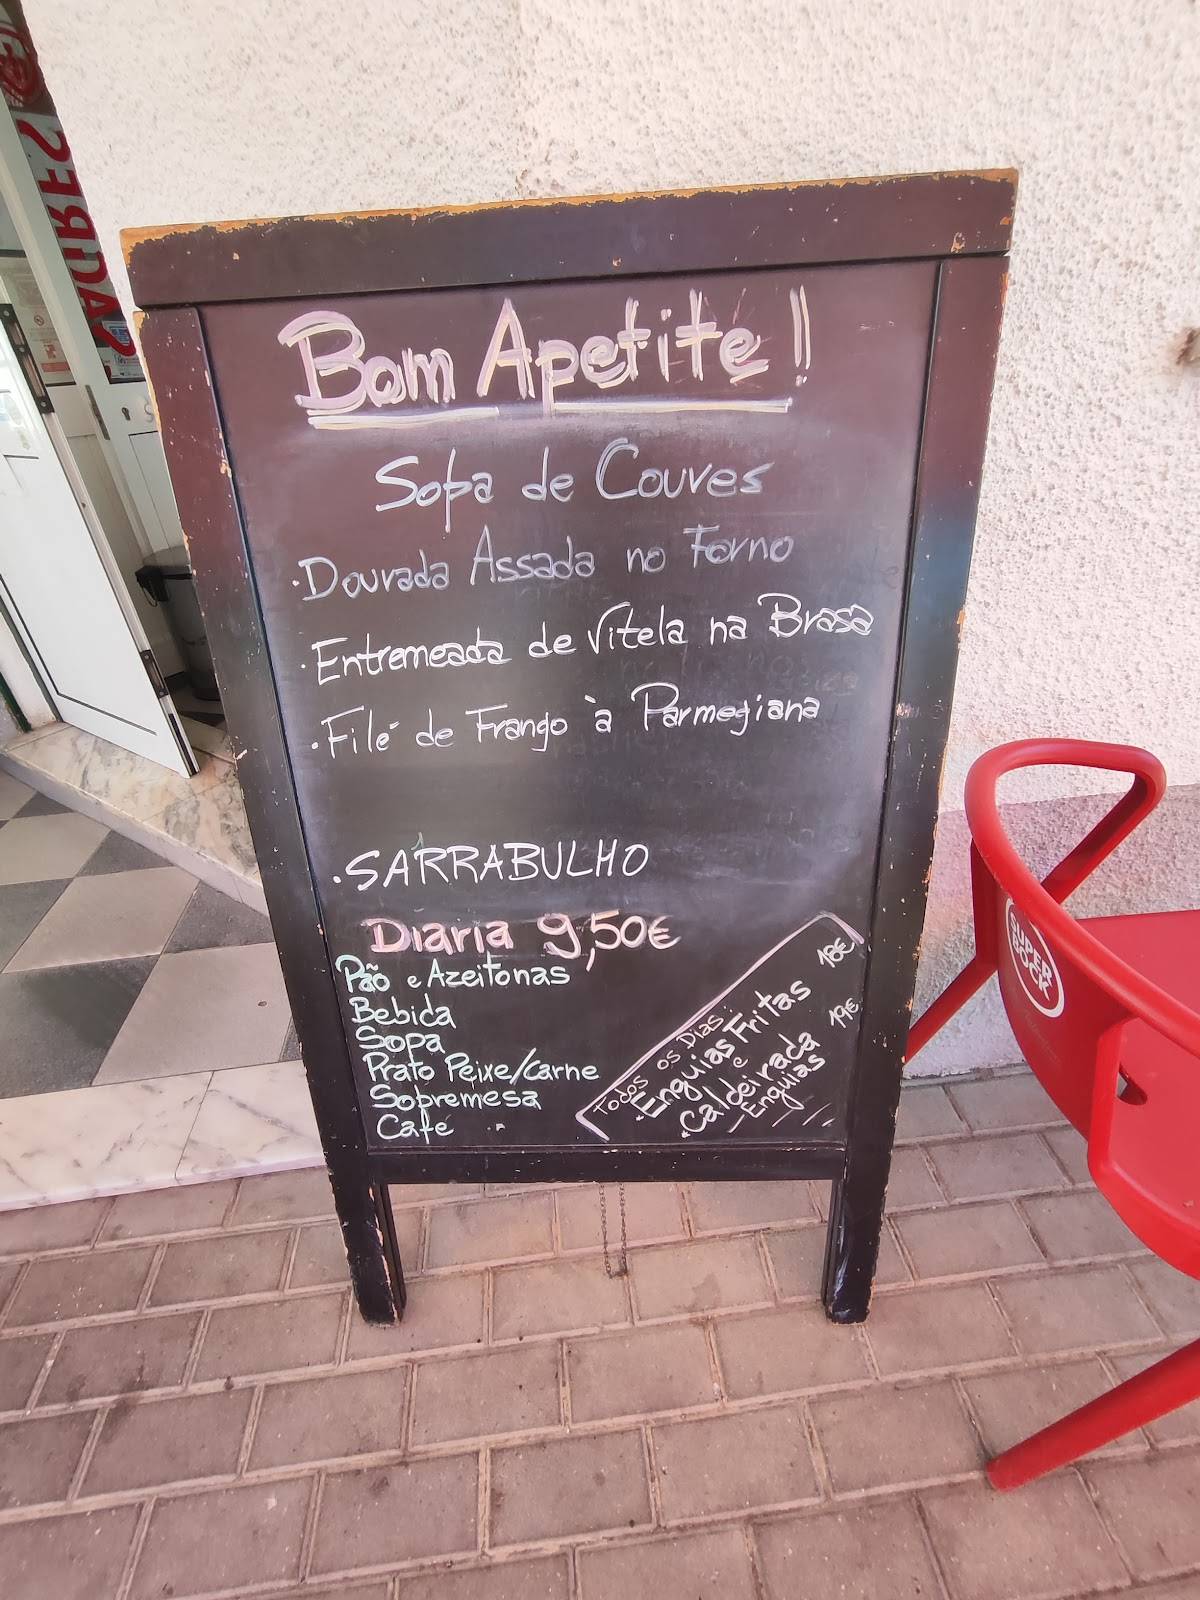 Bom Apetite!
Sopa de Couves
·Dourada Assada no Forno
·Entremeada de Vitela na Brasa
·Filé de Frango à Parmegiana
·SARRABULHO
Diaria 9,50€
Pão e Azeitonas
Bebida
Sopa
Prato Peixe/Carne
Sobremesa
Café
Todos os Dias:
Enguias Fritas 18€
e
Caldeirada 19€
Enguias
SUPER
BOCK
SAGRES